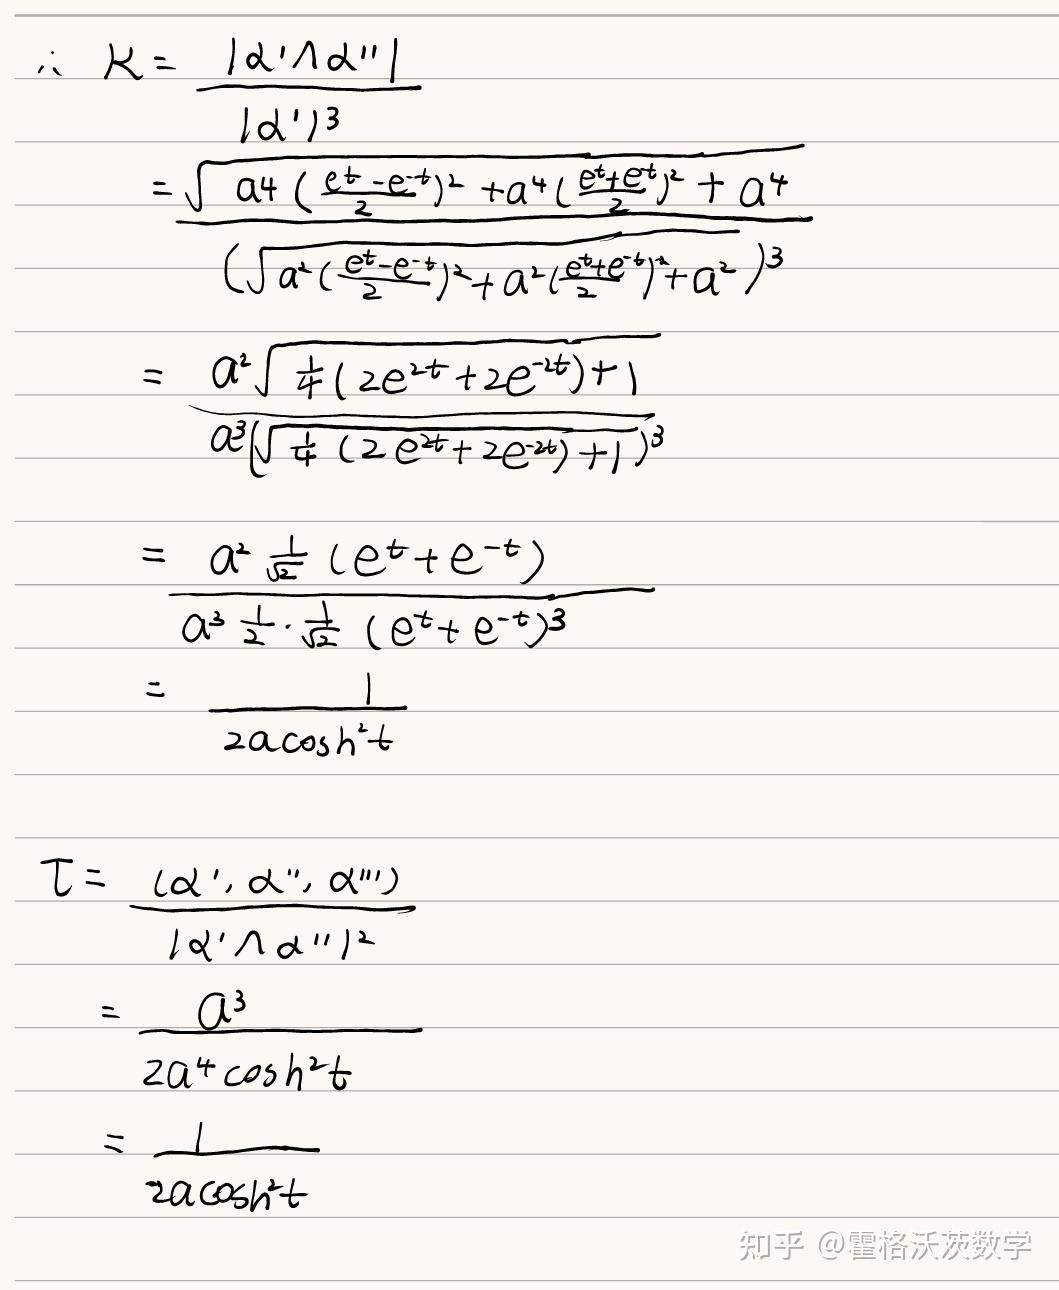 ∴ K = |α'∧α''|
|α'|³
= √ a⁴ ( (eᵗ-e⁻ᵗ)/2 )² + a⁴ ( (eᵗ+e⁻ᵗ)/2 )² + a⁴
( √ a² ( (eᵗ-e⁻ᵗ)/2 )² + a² ( (eᵗ+e⁻ᵗ)/2 )² + a² )³
= a² √ 1/4 ( 2e²ᵗ + 2e⁻²ᵗ ) + 1
a³ ( √ 1/4 ( 2e²ᵗ + 2e⁻²ᵗ ) + 1 )³
= a² 1/√2 ( eᵗ + e⁻ᵗ )
a³ 1/2 · 1/√2 ( eᵗ + e⁻ᵗ )³
= 1
2acosh²t
τ = (α', α'', α''')
|α'∧α''|²
= a³
2a⁴cosh²t
= 1
2acosh²t
知乎 @霍格沃茨数学